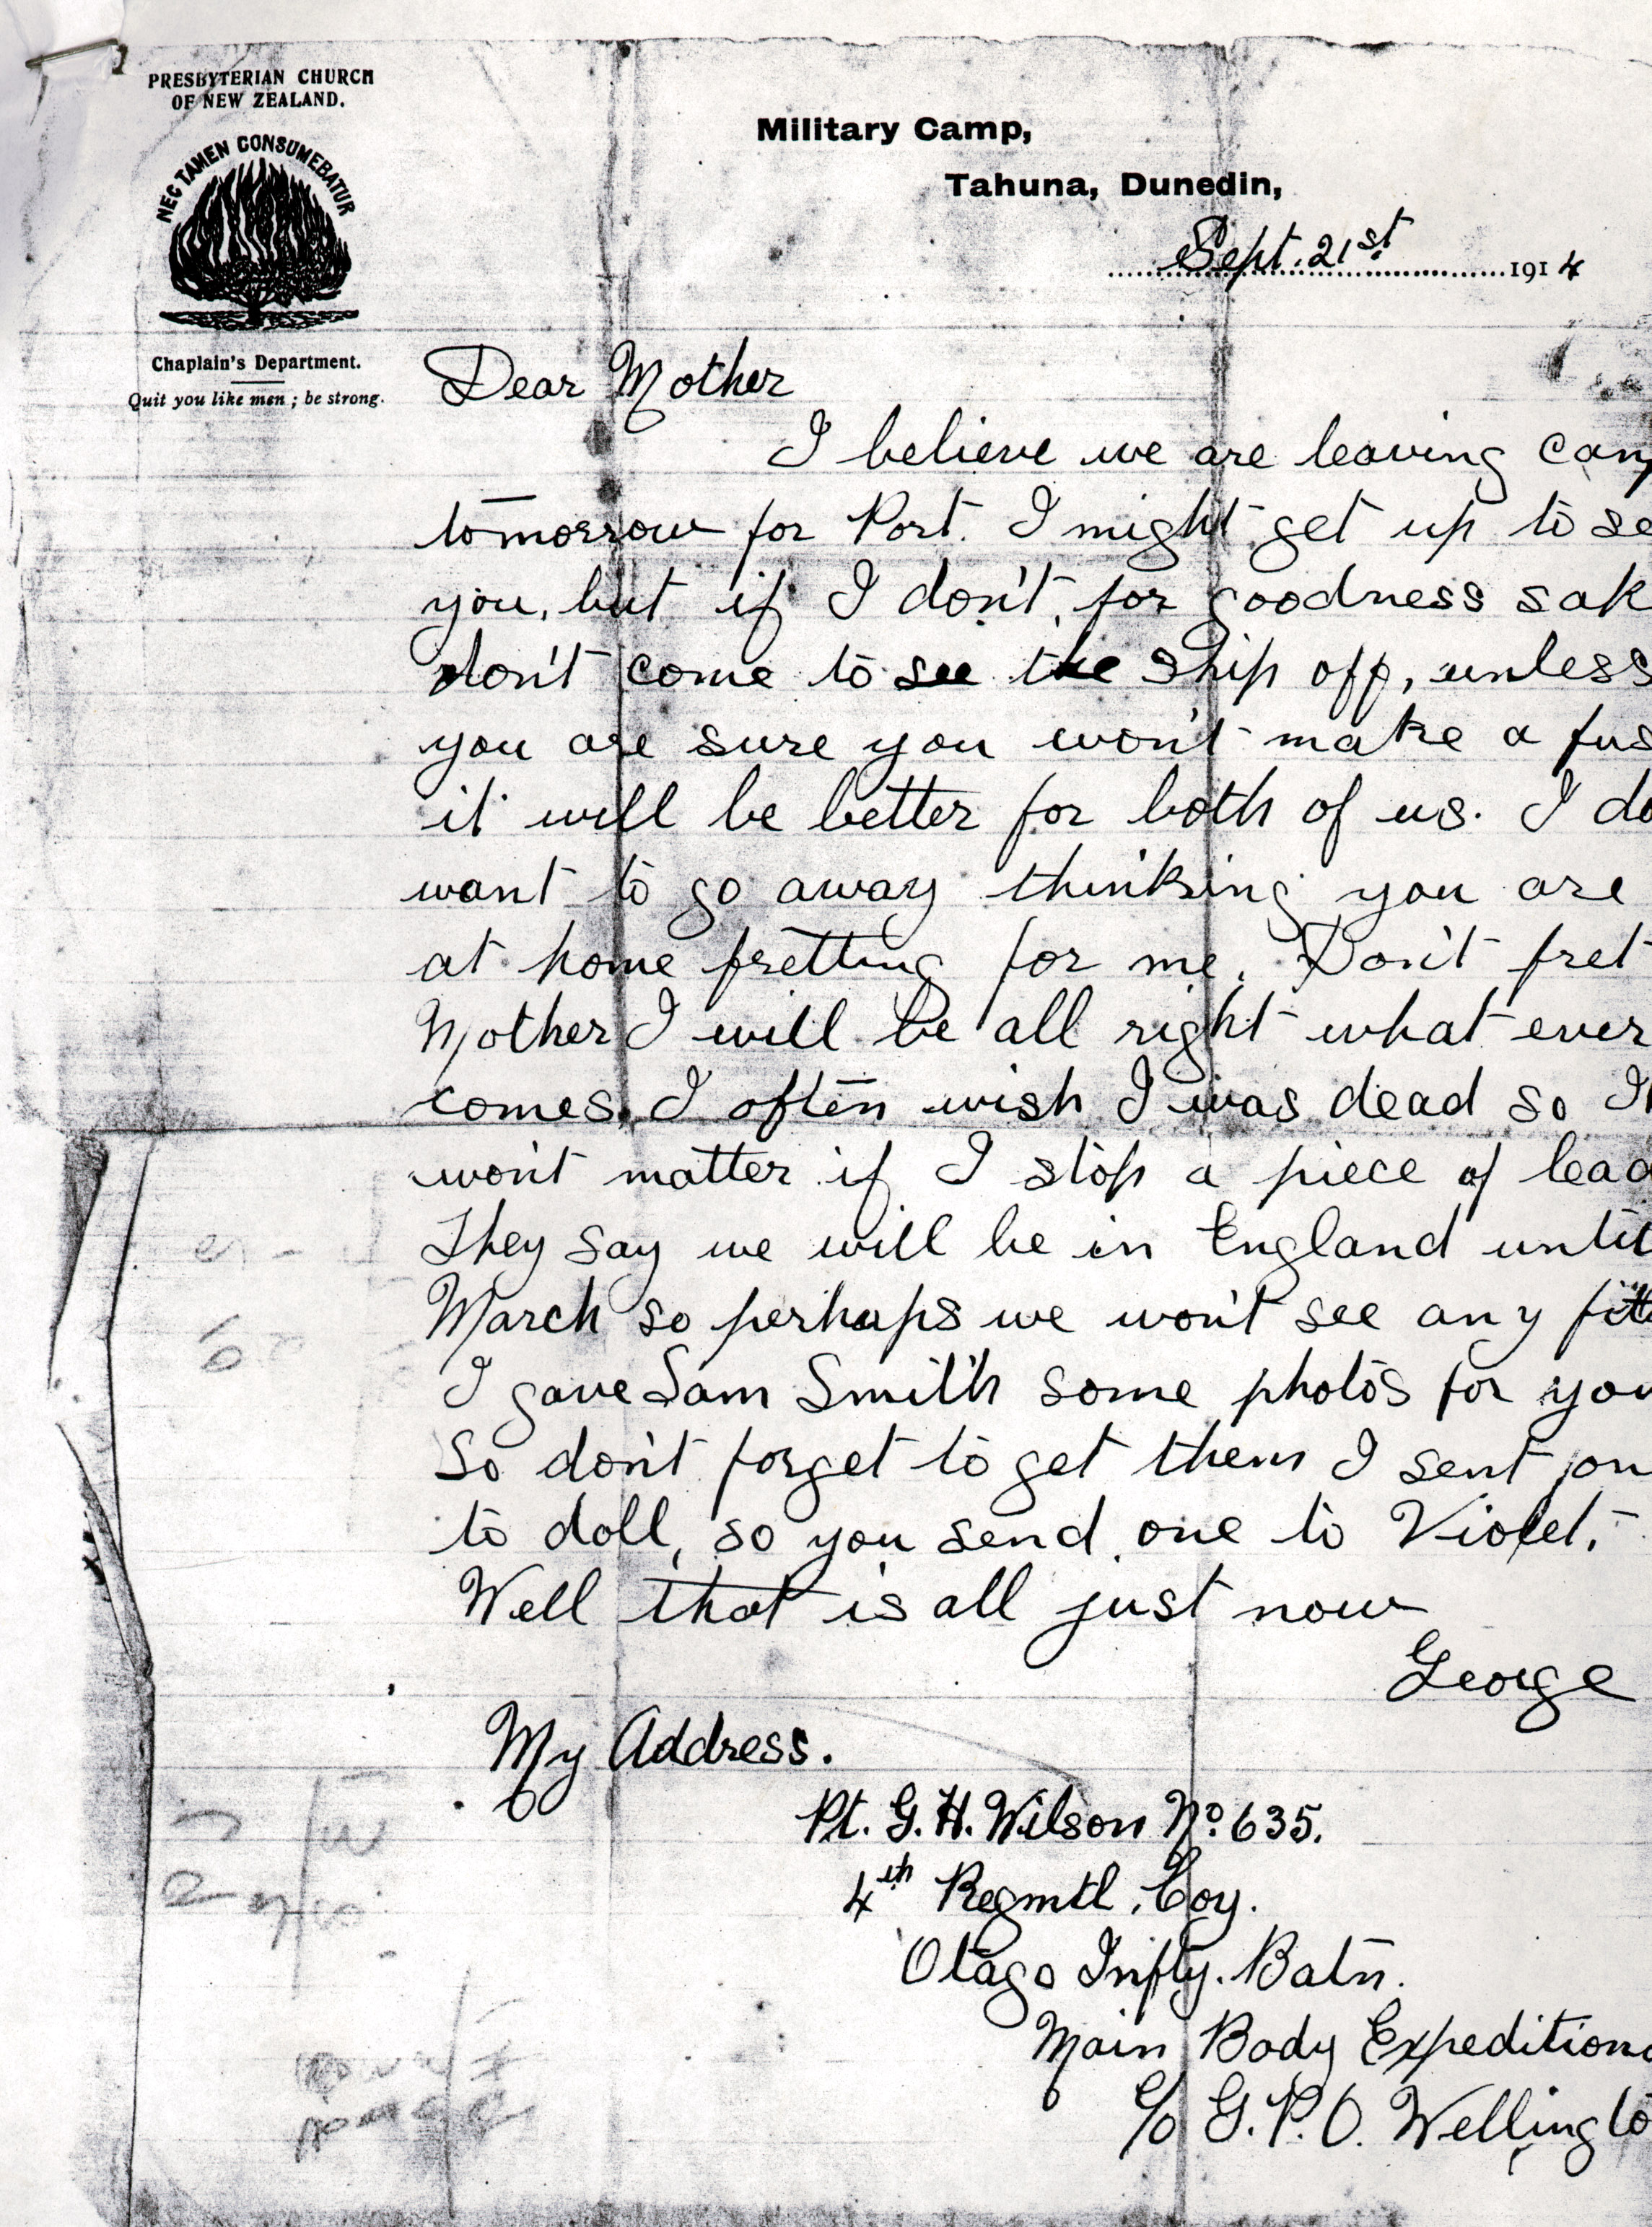 PRESBYTERIAN CHURCH
OF NEW ZEALAND.
NEC TAMEN CONSUMEBATUR
Chaplain's Department.
Quit you like men; be strong.
Military Camp,
Tahuna, Dunedin,
Sept. 21st 1914
Dear Mother
I believe we are leaving cam
tomorrow for Port. I might get up to se
you, but if I don't, for goodness sak
don't come to see the ship off, unless
you are sure you won't make a fus
it will be better for both of us. I do
want to go away thinking you are
at home fretting for me. Don't fret
Mother I will be all right what ever
comes. I often wish I was dead so It
won't matter if I stop a piece of lead
They say we will be in England until
March so perhaps we won't see any
I gave Sam Smith some photos for you
So don't forget to get them I sent on
to doll, so you send one to Violet.
Well that is all just now
George
My Address.
Pt. G. H. Wilson No. 635.
4th Regmtl. Coy.
Otago Infty. Batn.
Main Body Expeditiona
c/o G.P.O. Wellingto